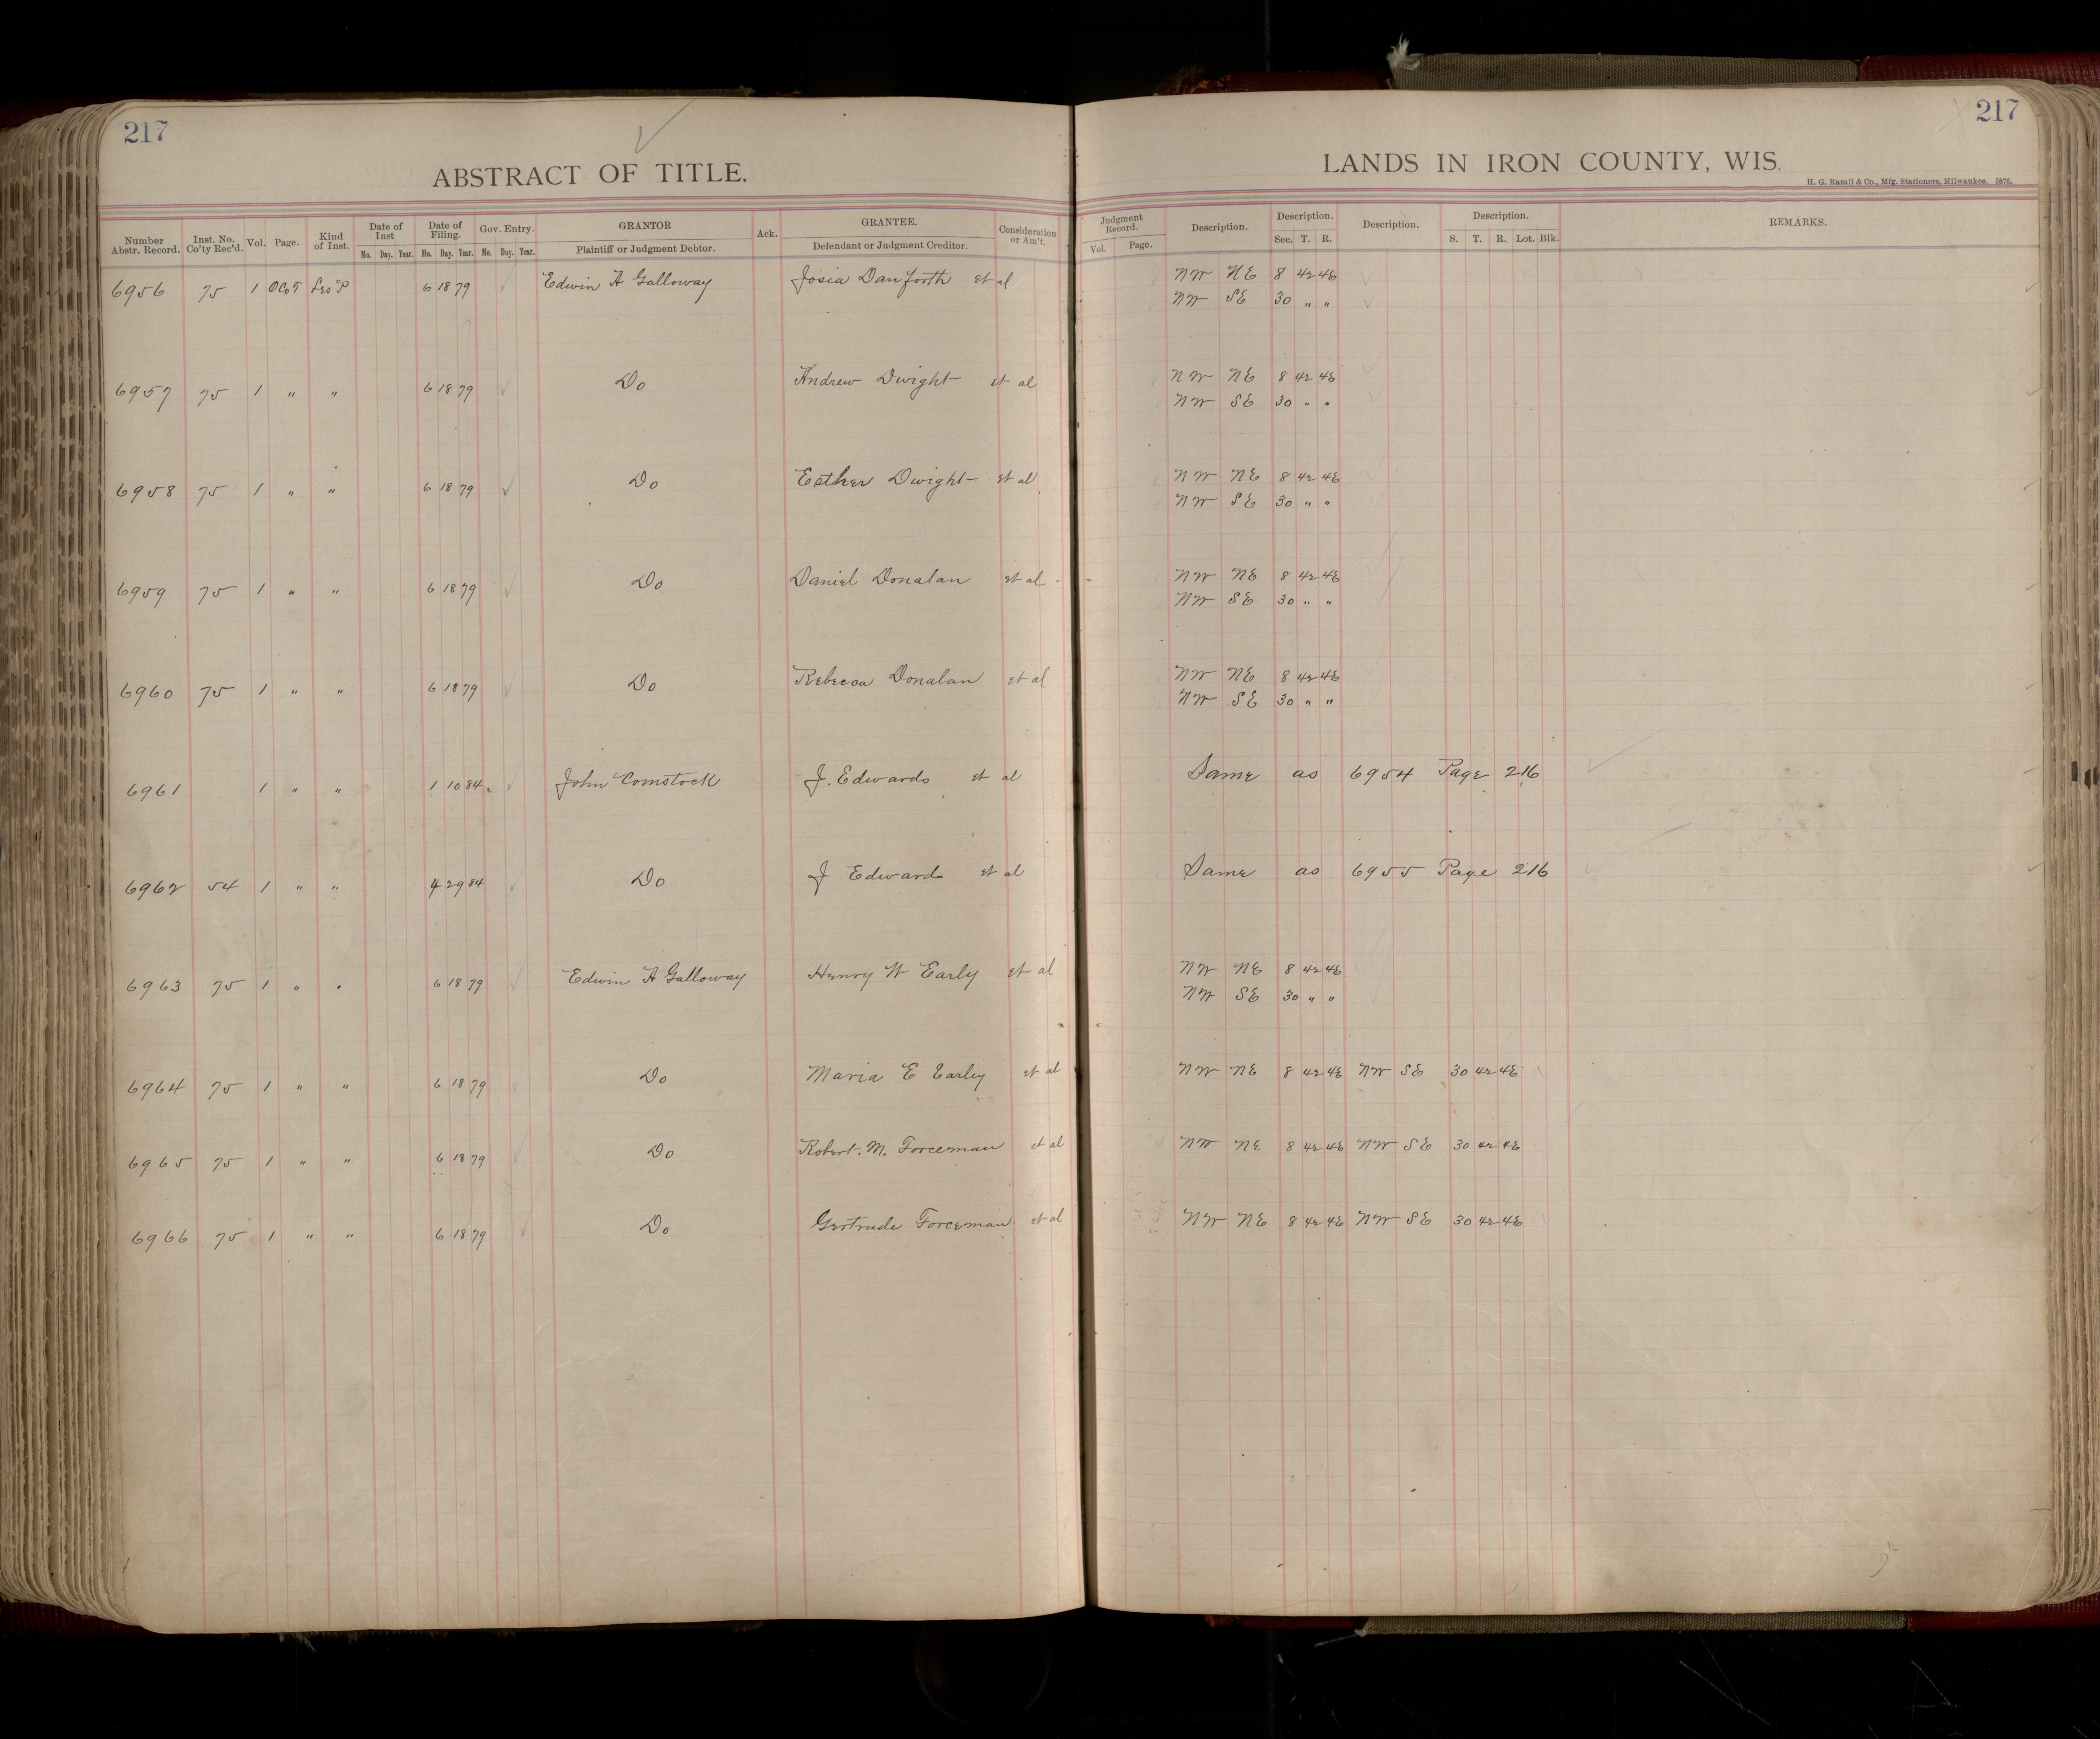 217
217
ABSTRACT OF TITLE.
LANDS IN IRON COUNTY, WIS.
H. G. Razall & Co., Mfg. Stationers, Milwaukee. 5876.
Number Abstr. Record. Inst. No. Co'ty Rec'd. Vol. Page. Kind of Inst. Date of Inst Date of Filing. Gov. Entry. GRANTOR Ack. GRANTEE. Consideration or Am't. Judgment Record. Description. Description. Description. Description. REMARKS.
Mo. Day. Year. Mo. Day. Year. Mo. Day. Year. Plaintiff or Judgment Debtor. Defendant or Judgment Creditor. Vol. Page. Sec. T. R. S. T. R. Lot. Blk.
6956 75 1 OCoT 6 18 79 Edwin A Galloway Josia Danforth et al NW NE 8 42 4E
NW SE 30 " "
6957 75 1 " " 6 18 79 Do Andrew Dwight et al NW NE 8 42 4E
NW SE 30 " "
6958 75 1 " " 6 18 79 Do Esther Dwight et al NW NE 8 42 4E
NW SE 30 " "
6959 75 1 " " 6 18 79 Do Daniel Donalan et al NW NE 8 42 4E
NW SE 30 " "
6960 75 1 " " 6 18 79 Do Rebecca Donalan et al NW NE 8 42 4E
NW SE 30 " "
6961 1 " " 1 10 84 John Comstock J. Edwards et al Same as 6954 Page 216
6962 54 1 " " 4 29 84 Do J Edwards et al Same as 6955 Page 216
6963 75 1 " " 6 18 79 Edwin A Galloway Henry W Early et al NW NE 8 42 4E
NW SE 30 " "
6964 75 1 " " 6 18 79 Do Maria E Earley et al NW NE 8 42 4E NW SE 30 42 4E
6965 75 1 " " 6 18 79 Do Robert. M. Forceman et al NW NE 8 42 4E NW SE 30 42 4E
6966 75 1 " " 6 18 79 Do Gertrude Forceman et al NW NE 8 42 4E NW SE 30 42 4E